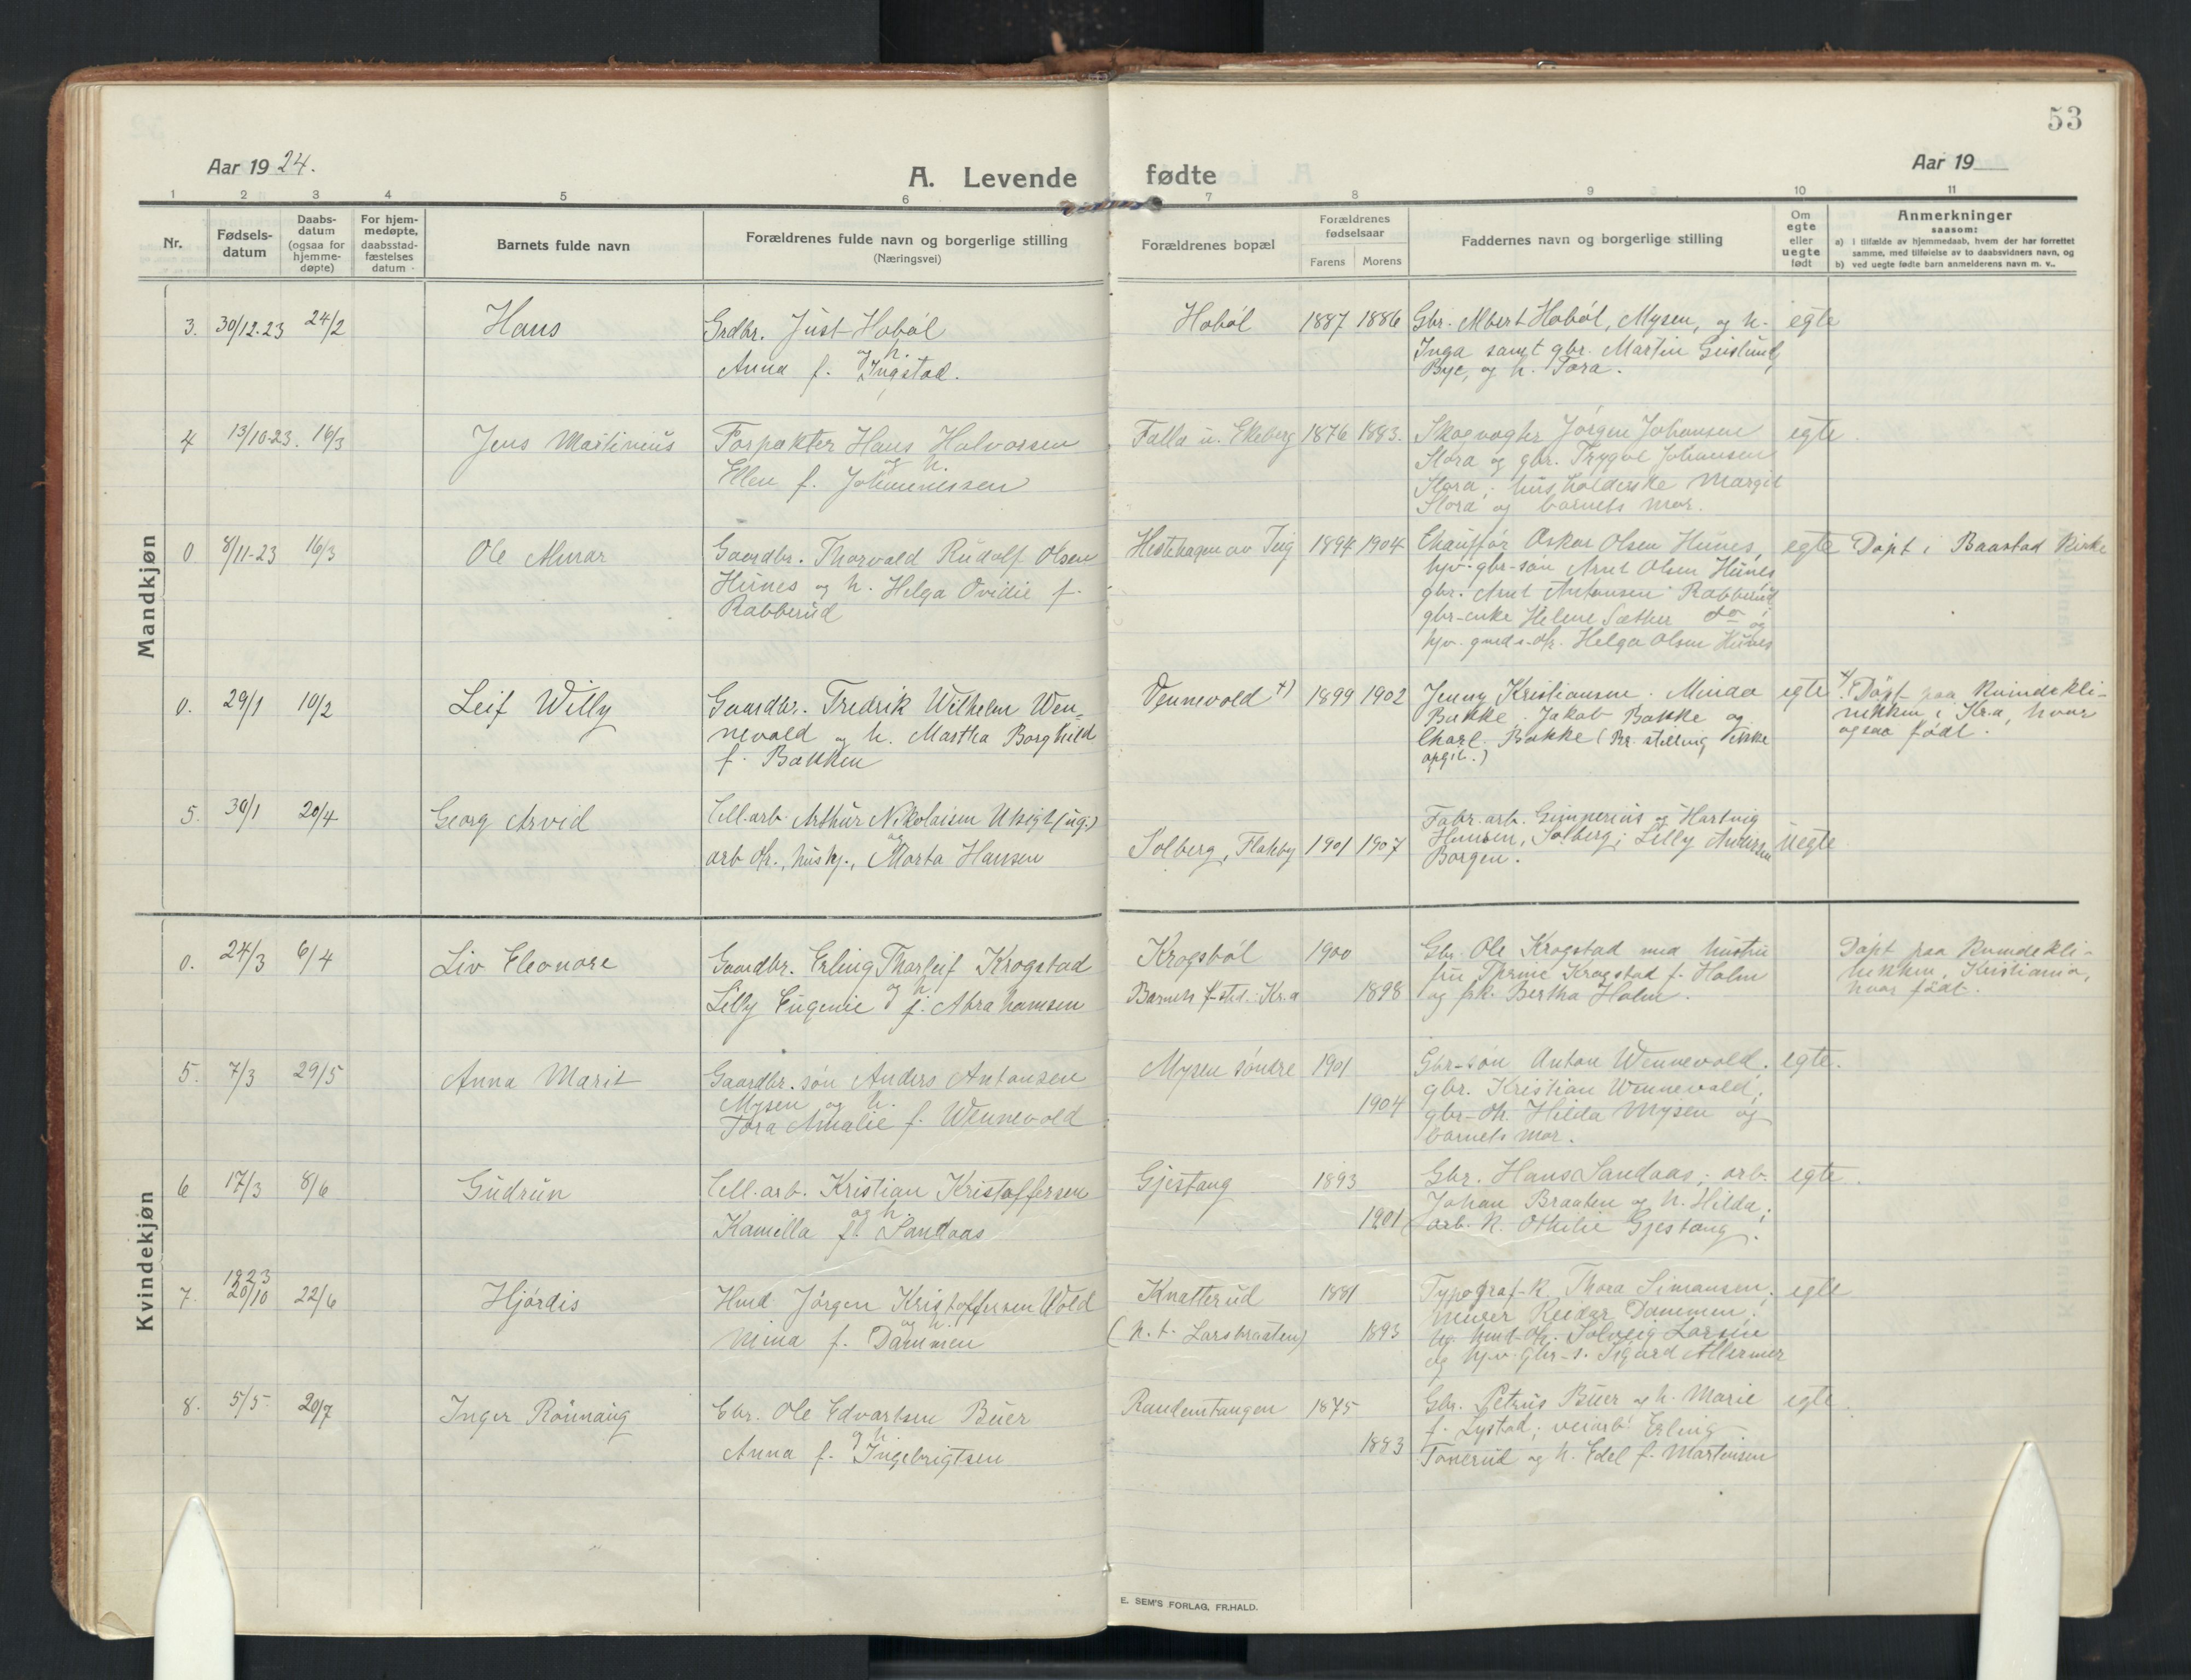 53
Aar 1924.
A. Levende fødte
Aar 19
1 2 3 4 5 6 7 8 9 10 11
Nr.
Fødsels-
datum
Daabs-
datum
(ogsaa for
hjemme-
døpte)
For hjem-
medøpte,
daabsstad-
fæstelses
datum
Barnets fulde navn
Forældrenes fulde navn og borgerlige stilling
(Næringsvei)
Forældrenes bopæl
Forældrenes
fødselsaar
Farens Morens
Faddernes navn og borgerlige stilling
Om
egte
eller
uegte
født
Anmerkninger
saasom:
a) i tilfælde av hjemmedaab, hvem der har forrettet
samme, med tilføielse av to daabsvidners navn, og
b) ved uegte fødte barn anmelderens navn m. v..
Mandkjøn
3. 30/12.23 24/2 Hans
Grdbr. Just Haböl
og h.
Anna f. Ingstad.
Haböl 1887 1886
Gbr. Albert Haböl, Mysen, og h.
Inga samt gbr. Martin
Bye, og h. Tora.
egte
4 13/10-23. 16/3 Jens Martinius
Forpakter Hans Halvorsen
og h.
Ellen f. Johannessen
Falla u. Ekeberg 1876 1883.
Skogvogter Jörgen Johansen
Slora og gbr. Trygve Johansen
Slora; husholderske Margit
Slora og barnets mor.
egte.
0 8/11-23 16/3 Ole Alvar
Gaardbr. Thorvald Rudolf Olsen
Hünes og h. Helga Ovidie f.
Rabberud
Hestehagen av Ing 1894 1904
Chauffør Oskar Olsen Hünes,
hjv. gbr-søn Arnt Olsen Hünes
gbr. Arnt Antonsen Rabberud
gbr-enke Helene Sæther do og
hjv. gmds-dtr. Helga Olsen Hünes
egte
Døpt i Baastad Kirke
0. 29/1 10/2 Leif Willy
Gaardbr. Fredrik Wilhelm Wen-
nevold og h. Martha Borghild
f. Bakken
Vennevold +) 1899 1902
Jenny Kristiansen. Minda
Bakke. Jakob Bakke og
Charl. Bakke (Br. stilling ikke
opgit.)
egte
+) Døpt paa Kvindekli-
nikken i Kr.a, hvor
ogsaa født.
5. 30/1 20/4 Georg Arvid
Cell.arb. Arthur Nikolaisen Utsigt (ug.)
og
arb.dtr., hushj., Marta Hansen
Solberg, Flakby 1901 1907
Fabr.arb. Gimperius og Hartvig
Hansen, Solberg; Lilly
Borgen.
uegte
Kvindekjøn
0. 24/3 6/4 Liv Eleonore
Gaardbr. Erling Thorleif Krogstad
og h.
Lilly Eugenie f. Abrahamsen
Krogsböl 1900
Barnets f-sted: Kr.a 1898
Gbr. Ole Krogstad med hustru
fru Krogstad f. Holm
og frk. Bertha Holm.
Døpt paa Kvindekli-
nikken, Kristiania,
hvor født.
5. 7/3 29/5 Anna Marit
Gaardbr. søn Anders Antonsen
Mysen og h.
Tora Amalie f. Wennevold
Mysen søndre 1901
1904
Gbr-søn Anton Wennevold.
gbr. Kristian Wennevold,
gbr-dtr. Hilda Mysen og
barnets mor.
egte.
6 17/3 8/6 Gudrun
Cell.arb. Kristian Kristoffersen
og h.
Kamilla f. Sandaas
Gjestang 1893
1901
Gbr. Hans Sandaas; arb.
Johan Braaten og h. Hilda;
arb. h. Othilie Gjestang.
egte.
7. 1923 20/10 22/6 Hjørdis
Hmd Jörgen Kristoffersen Wold
og h.
Mina f. Dammen
Knatterud 1881
(n.t. Larsbraaten) 1893
Typograf-k. Thora Simansen,
murer Reidar Dammen;
hmd-dtr. Solveig Larsen
og hjv. gbr-s. Sigurd
egte
8. 5/5 20/7 Inger Rönnaug
Gbr. Ole Edvartsen Büer
og h.
Anna f. Ingebrigtsen
Randemtangen 1875
1883
Gbr. Petrus Büer og h. Marie
f. Lystad; veiarb. Erling
Tonerud og h. Edel f. Martinsen
egte.
E. SEM'S FORLAG, FR.HALD.